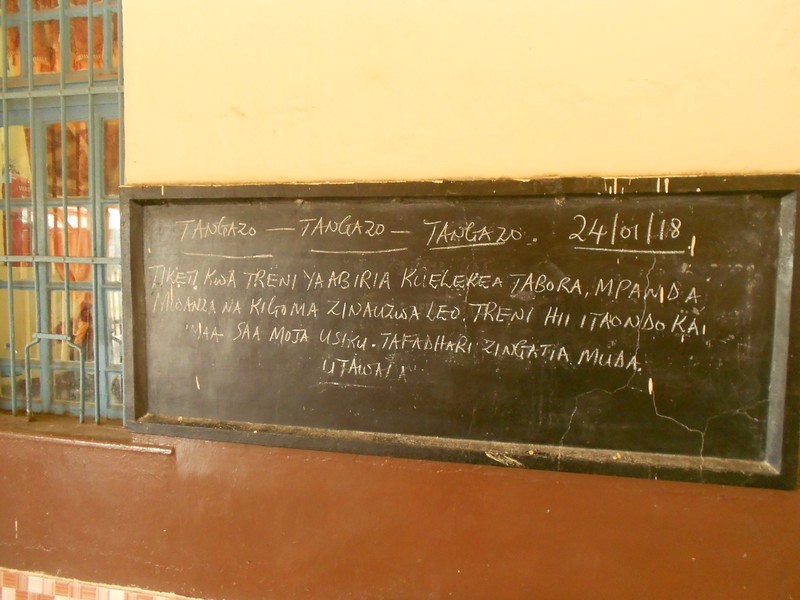 TANGAZO — TANGAZO — TANGAZO. 24/01/18
TIKETI KWA TRENI YA ABIRIA KUELEKEA TABORA, MPANDA
MWANZA NA KIGOMA ZINAUZWA LEO. TRENI HII ITAONDOKA,
SAA MOJA USIKU. TAFADHARI ZINGATIA MUDA.
UTAWALA